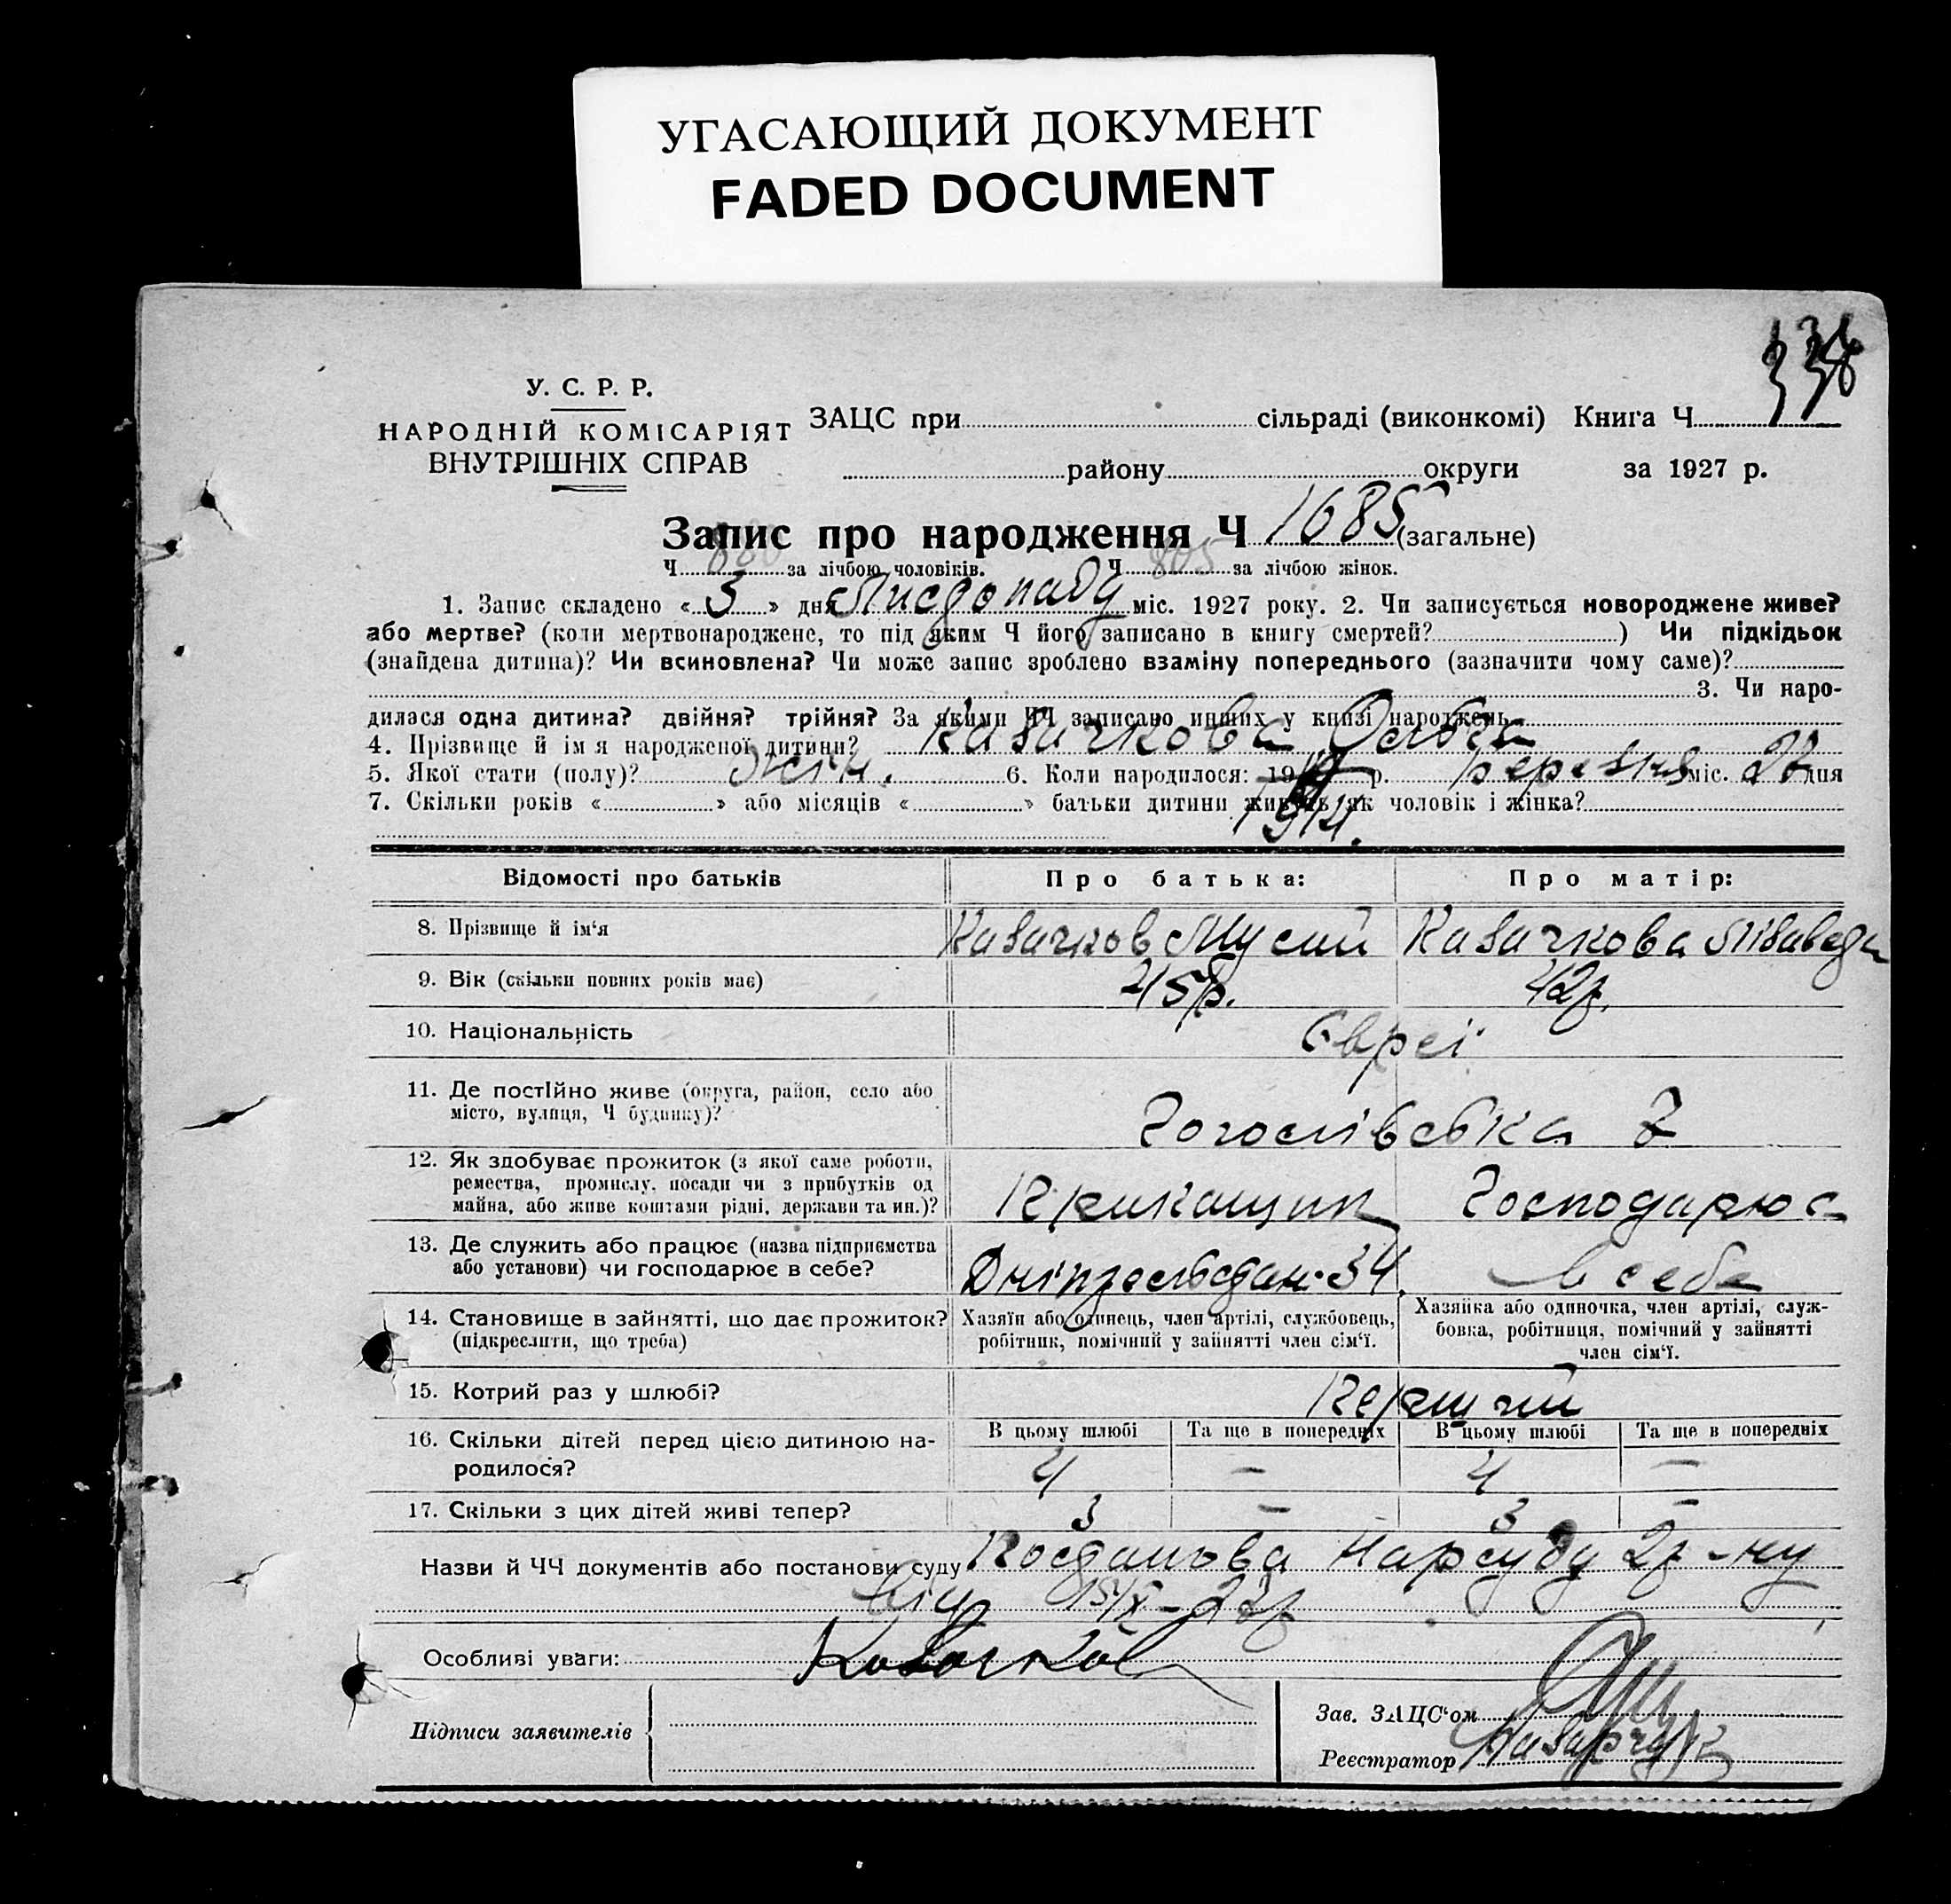 УГАСАЮЩИЙ ДОКУМЕНТ
FADED DOCUMENT
338
У. С. Р. Р.
НАРОДНІЙ КОМІСАРІЯТ
ВНУТРІШНІХ СПРАВ
ЗАЦС при сільраді (виконкомі) Книга Ч
району округи за 1927 р.
Запис про народження Ч 1685 (загальне)
Ч 880 за лічбою чоловіків. Ч 805 за лічбою жінок.
1. Запис складено « 3 » дня Листопаду міс. 1927 року. 2. Чи записується новороджене живе?
або мертве? (коли мертвонароджене, то під яким Ч його записано в книгу смертей? ) Чи підкідьок
(знайдена дитина)? Чи всиновлена? Чи може запис зроблено взаміну попереднього (зазначити чому саме)?
3. Чи наро-
дилася одна дитина? двійня? трійня? За якими ЧЧ записано инших у книзі народжень
4. Прізвище й ім я народженої дитини? Казачкова Ольга
5. Якої стати (полу)? жін. 6. Коли народилося: 19 р. березня міс. 27 дня
7. Скільки років « » або місяців « » батьки дитини живуть як чоловік і жінка?
1914.
Відомості про батьків Про батька: Про матір:
8. Прізвище й ім‘я Казачков Мусий Казачкова Лізавєда
9. Вік (скільки повних років має) 45р. 42р.
10. Національність Євреї
11. Де постійно живе (округа, район, село або
місто, вулиця, Ч будинку)? Гоголівська 7
12. Як здобуває прожиток (з якої саме роботи,
ремества, промислу, посади чи з прибутків од
майна, або живе коштами рідні, держави та ин.)? Прикащик Господарює
13. Де служить або працює (назва підприємства
або установи) чи господарює в себе? 34. в себе
14. Становище в зайнятті, що дає прожиток?
(підкреслити, що треба)
Хазяїн або одинець, член артілі, службовець,
робітник, помічний у зайнятті член сім‘ї.
Хазяйка або одиночка, член артілі, служ-
бовка, робітниця, помічний у зайнятті
член сім‘ї.
15. Котрий раз у шлюбі? Перший
В цьому шлюбі Та ще в попередніх В цьому шлюбі Та ще в попередніх
16. Скільки дітей перед цією дитиною на-
родилося? 4 – 4 –
17. Скільки з цих дітей живі тепер? 3 – 3 –
Назви й ЧЧ документів або постанови суду Постанова Нарсуду 2р-ну
від 15/X-27р
Особливі уваги: Казачков
Підписи заявителів
Зав. ЗАЦС‘ом
Реєстратор